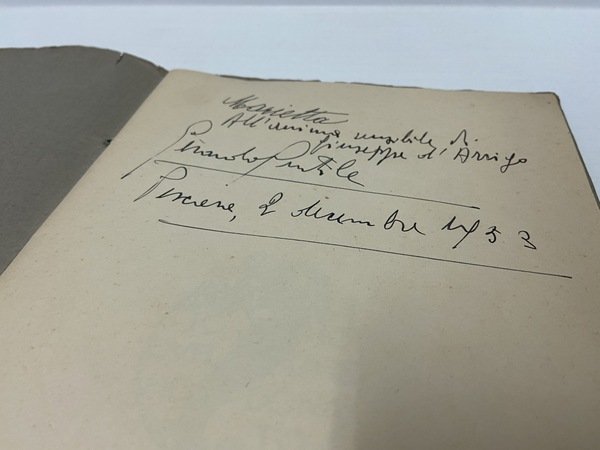 Marietta
All'anima nobile di
Giuseppe d'Arrigo
Gentile
2 dicembre 1953